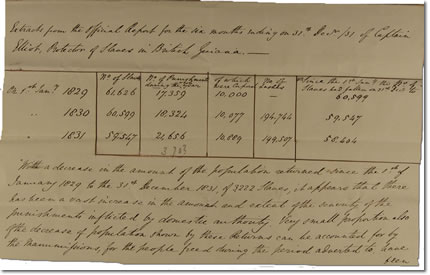 Extracts from the Official Report for the six months ending on 31st Decr /31 of Captain
Elliot, Protector of Slaves in British Guiana. —
No. of Slaves No. of Punishments during the Year of which were Corporal No. of Lashes Since the 1st Jany the No. of Slaves had fallen on 31st Decr to
On 1st Jany 1829 61,626 17,359 10,000 — 60,599
" 1830 60,599 18,324 10,077 194,744 59,547
" 1831 59,547 21,656 10,009 199,507 58,404
With a decrease in the amount of the population returned since the 1st of
January 1829 to the 31st December 1831, of 3222 Slaves, it appears that there
has been a vast increase in the amount and extent of the severity of the
punishments inflicted by domestic authority. Very small proportion also
of the decrease of population shown by these returns can be accounted for by
the manumissions, for the people freed during the period adverted to have
been